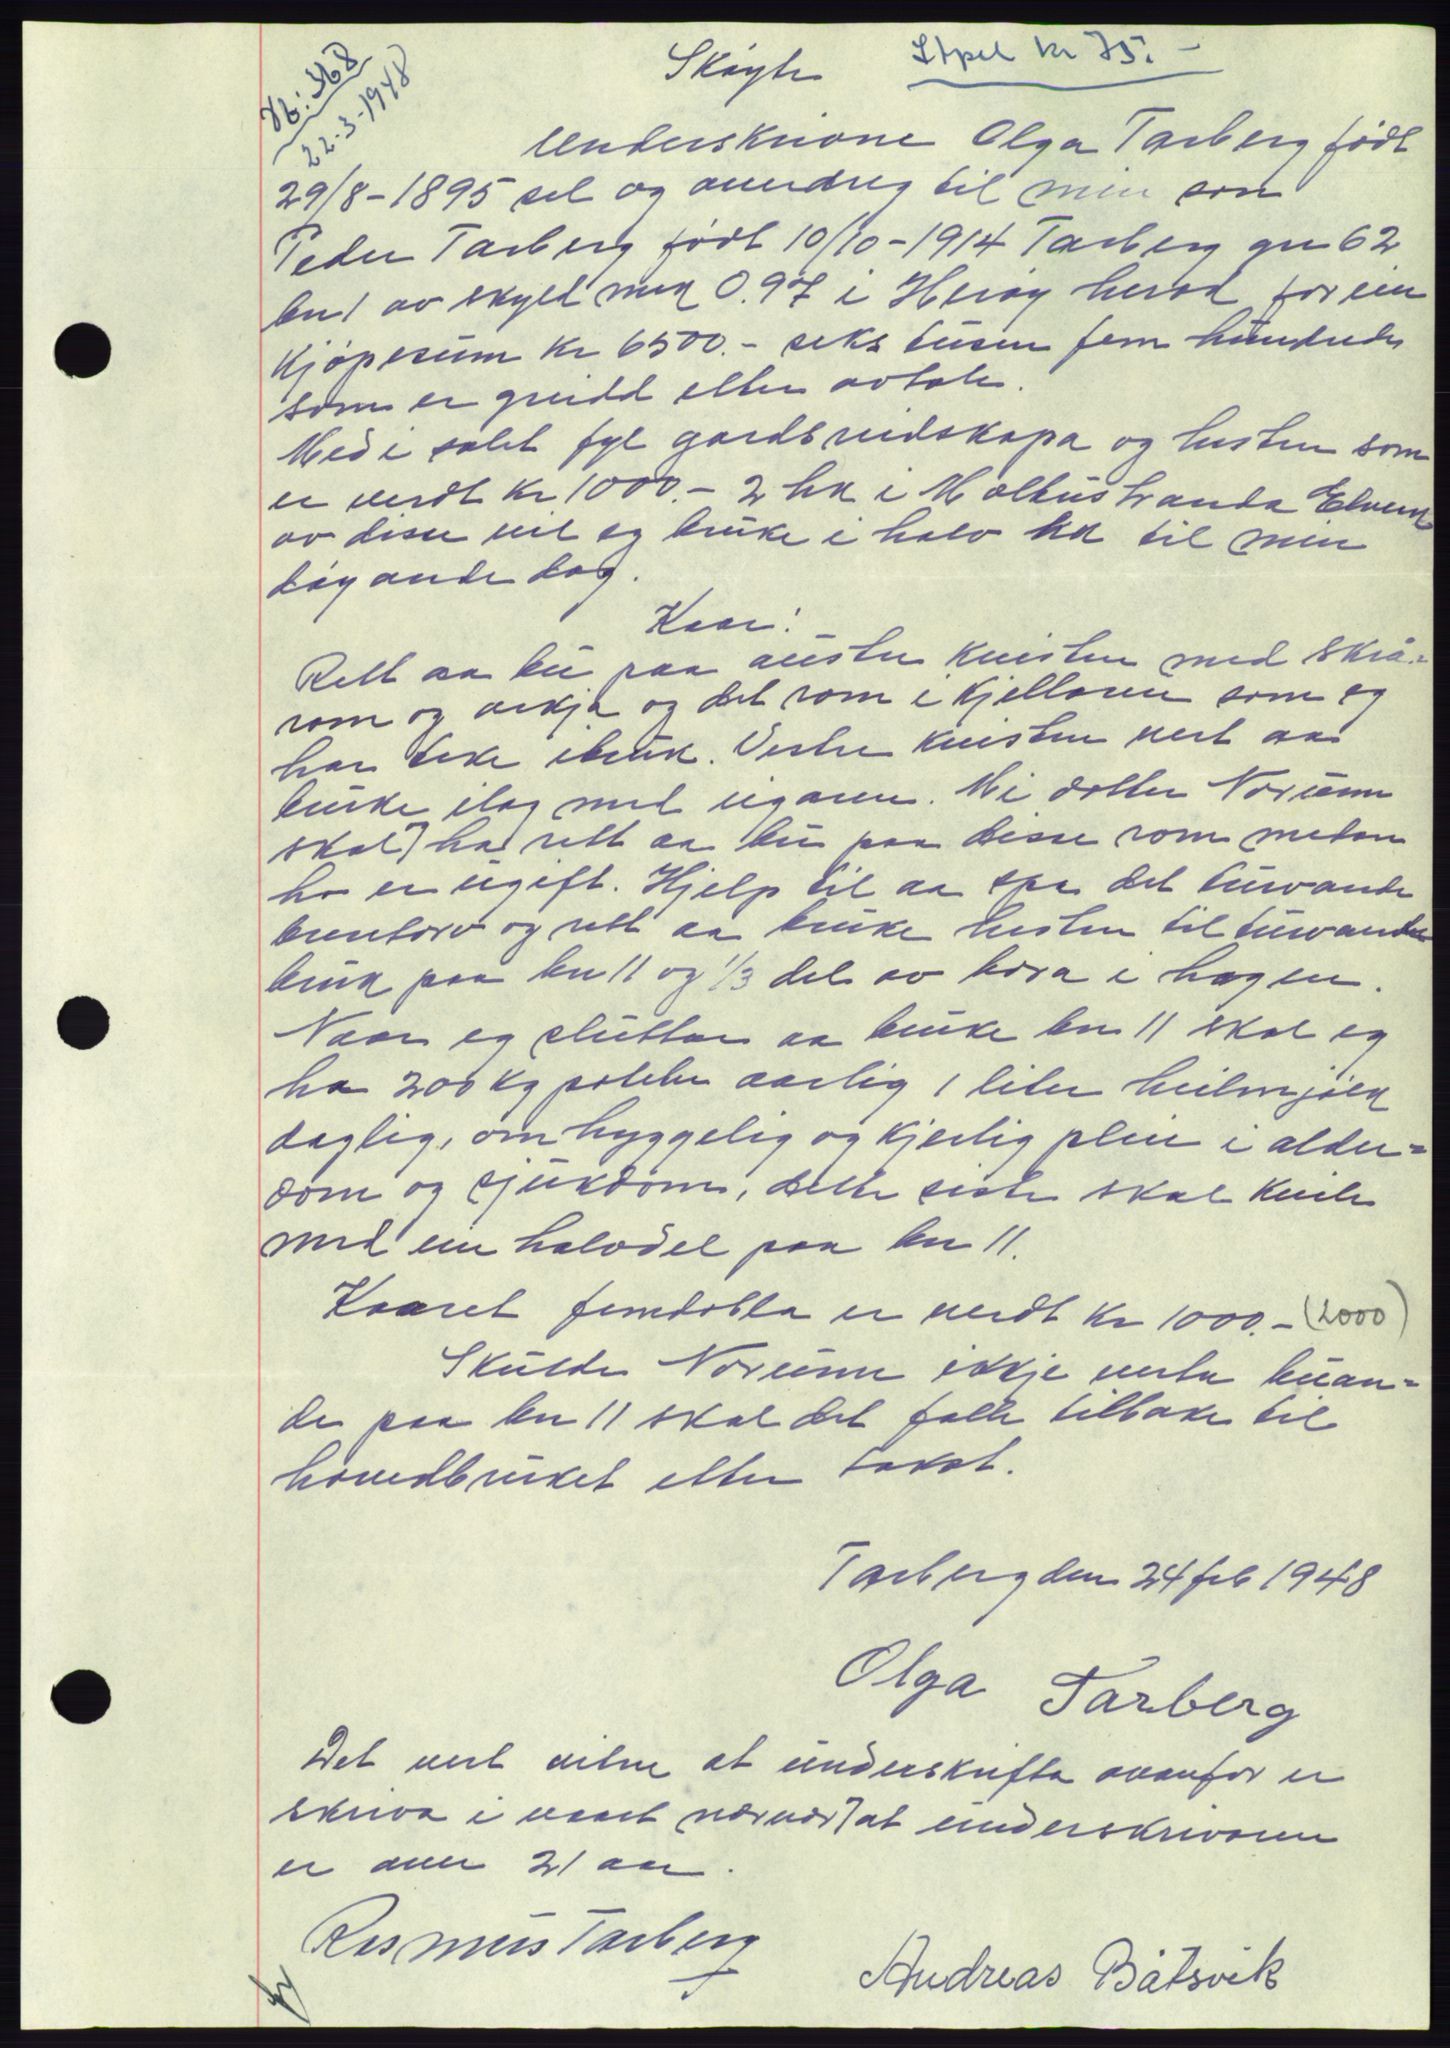 Nr: 368
22-3-1948
Skøyte Stpel kr 75.-
Underskrivne Olga Tarberg født
29/8-1895 sel og overdreg til min son
Peder Tarberg født 10/10-1914 Tarberg gnr 62
bnr 1 av skyld mrk 0.97 i Herøy herad for ein
kjøpesum kr 6500.- seks tusen fem hundrede
som er greidd etter avtale.
Med i salet fyl gardsreidskapa og hesten som
er verdt kr 1000.- 2 hk i Moltustranda Elverk
av disse vil eg bruke i halv hk til min
døyande dag.
Kaar:
Rett aa bu paa austre kvisten med skrå-
rom og arkja og det rom i kjellaren som eg
har teke ibruk. Vestre kvisten vert aa
bruke ilag med eigaren. Mi dotter Norunn
skal ha rett aa bu paa disse rom medan
ho er ugift. Hjelp til aa spa det turvande
brentorv og rett aa bruke hesten til turvande
bruk paa bn 11 og 1/3 del av bæra i hagen.
Naar eg sluttar aa bruke bn 11 skal eg
ha 200 kg poteter aarlig 1 liter heilmjølk
daglig, omhyggelig og kjerlig pleie i alder-
dom og sjukdom, dette siste skal kvile
med ein halvdel paa bn 11.
Kaaret femdobla er verdt kr 1000.- (2000)
Skulde Norunn ikkje verta buan-
de paa bn 11 skal det falle tilbake til
hovedbruket etter takst.
Tarberg den 24 feb 1948
Olga Tarberg
Det vert vitne at underskrifta ovanfor er
skriva i vaart nærvær at underskrivaren
er over 21 aar.
Rasmus Tarberg
Andreas Båtsvik